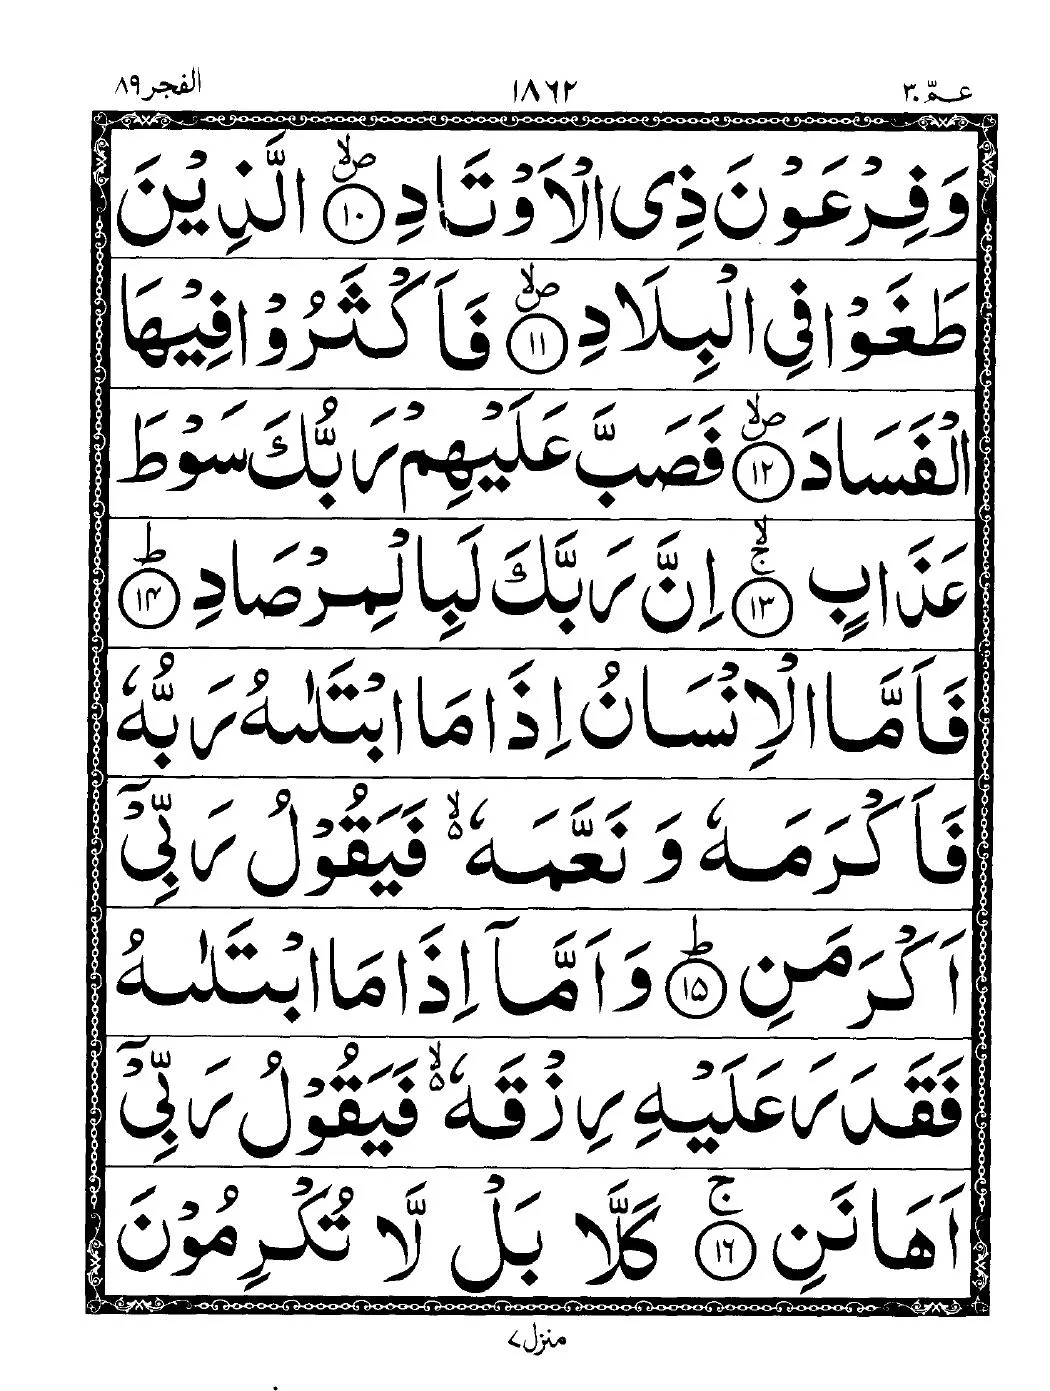 الفجر ٨٩ ١٨٦٢ عـمّ ٣٠
وَفِرْعَوْنَ ذِی الْاَوْتَادِ ۪ۙ ﴿۱۰﴾ الَّذِیْنَ
طَغَوْا فِی الْبِلَادِ ۪ۙ ﴿۱۱﴾ فَاَکْثَرُوْا فِیْهَا
الْفَسَادَ ۪ۙ ﴿۱۲﴾ فَصَبَّ عَلَیْهِمْ رَبُّكَ سَوْطَ
عَذَابٍ ۚۙ ﴿۱۳﴾ اِنَّ رَبَّكَ لَبِالْمِرْصَادِ ؕ ﴿۱۴﴾
فَاَمَّا الْاِنْسَانُ اِذَا مَا ابْتَلٰىهُ رَبُّهٗ
فَاَکْرَمَهٗ وَ نَعَّمَهٗ ۙ۬ فَیَقُوْلُ رَبِّیْۤ
اَکْرَمَنِ ؕ ﴿۱۵﴾ وَ اَمَّاۤ اِذَا مَا ابْتَلٰىهُ
فَقَدَرَ عَلَیْهِ رِزْقَهٗ ۙ۬ فَیَقُوْلُ رَبِّیْۤ
اَهَانَنِ ۚ ﴿۱۶﴾ کَلَّا بَلْ لَّا تُکْرِمُوْنَ
منزل ٧